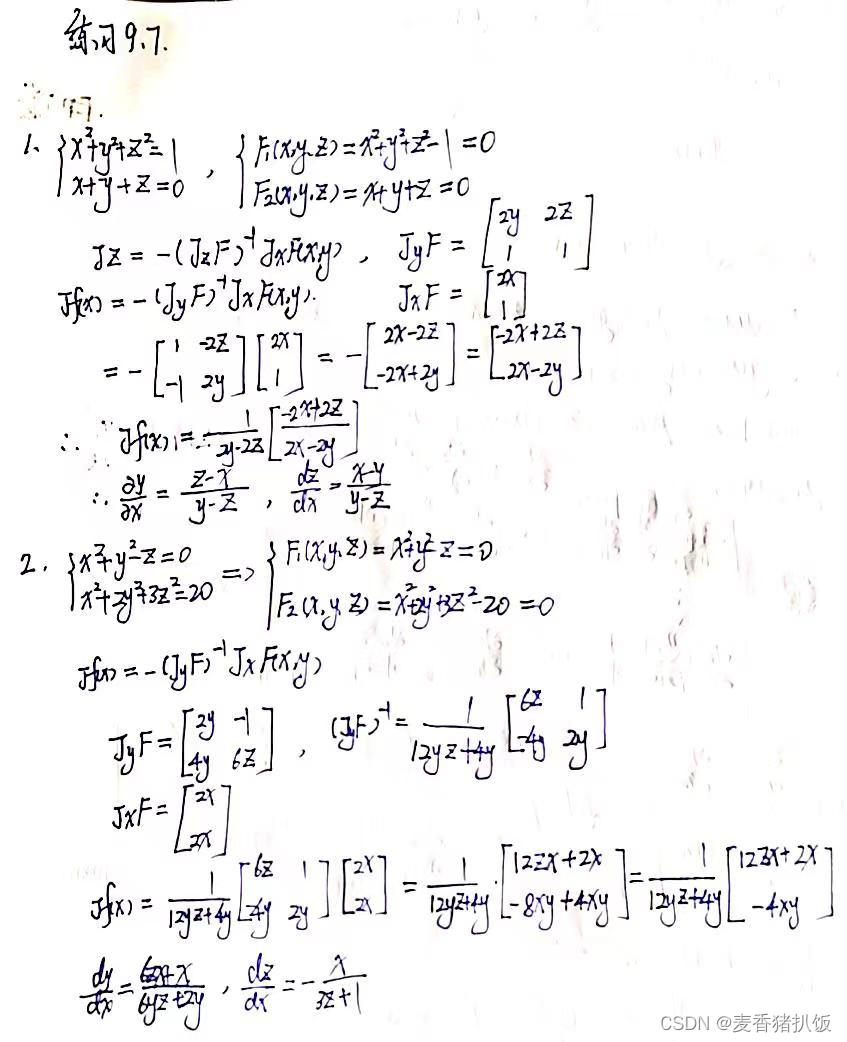 练习9.7.
1. { x²+y²+z²=1 , { F₁(x,y,z)=x²+y²+z²-1=0
x+y+z=0 F₂(x,y,z)=x+y+z=0
Jz = -(JzF)⁻¹JxF(x,y) , JyF = [2y 2z; 1 1]
Jf(x) = -(JyF)⁻¹JxF(x,y). JxF = [2x; 1]
= -[1 -2z; -1 2y][2x; 1] = -[2x-2z; -2x+2y] = [-2x+2z; 2x-2y]
∴ Jf(x) = 1/(2y-2z) [-2x+2z; 2x-2y]
∴ ∂y/∂x = (z-x)/(y-z) , dz/dx = (x-y)/(y-z)
2. { x²+y²-z=0 => { F₁(x,y,z)=x²+y²-z=0
x²+2y²+3z²=20 F₂(x,y,z)=x²+2y²+3z²-20=0
Jf(x) = -(JyF)⁻¹JxF(x,y)
JyF = [2y -1; 4y 6z] , (JyF)⁻¹ = 1/(12yz+4y) [6z 1; -4y 2y]
JxF = [2x; 2x]
Jf(x) = 1/(12yz+4y) [6z 1; -4y 2y][2x; 2x] = 1/(12yz+4y) · [12zx+2x; -8xy+4xy] = 1/(12yz+4y) [12zx+2x; -4xy]
dy/dx = (6zx+x)/(6yz+2y) , dz/dx = -x/(3z+1)
CSDN @麦香猪扒饭